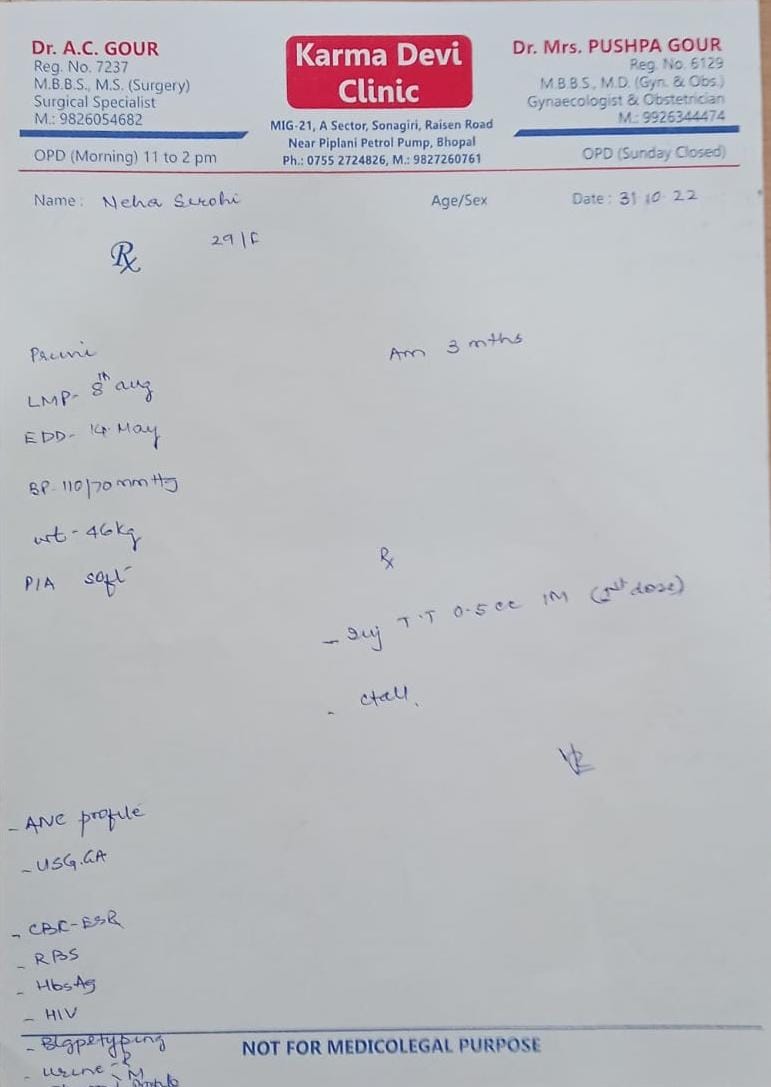 Dr. A.C. GOUR
Reg. No. 7237
M.B.B.S., M.S. (Surgery)
Surgical Specialist
M.: 9826054682
OPD (Morning) 11 to 2 pm
Karma Devi
Clinic
MIG-21, A Sector, Sonagiri, Raisen Road
Near Piplani Petrol Pump, Bhopal
Ph.: 0755 2724826, M.: 9827260761
Dr. Mrs. PUSHPA GOUR
Reg. No. 6129
M.B.B.S., M.D. (Gyn. & Obs.)
Gynaecologist & Obstetrician
M.: 9926344474
OPD (Sunday Closed)
Name : Neha Sirohi Age/Sex Date : 31 10 22
Rx 29/F
Primi Am 3 mths
LMP- 8th aug
EDD- 14 May
BP-110/70 mm Hg
wt-46kg
P/A soft
Rx
- Inj T.T 0.5 cc IM (dose)
- ct all.
- ANC profile
- USG.GA
- CBC-ESR
- RBS
- HbsAg
- HIV
- Blgpetyping
NOT FOR MEDICOLEGAL PURPOSE
- urine - R
M